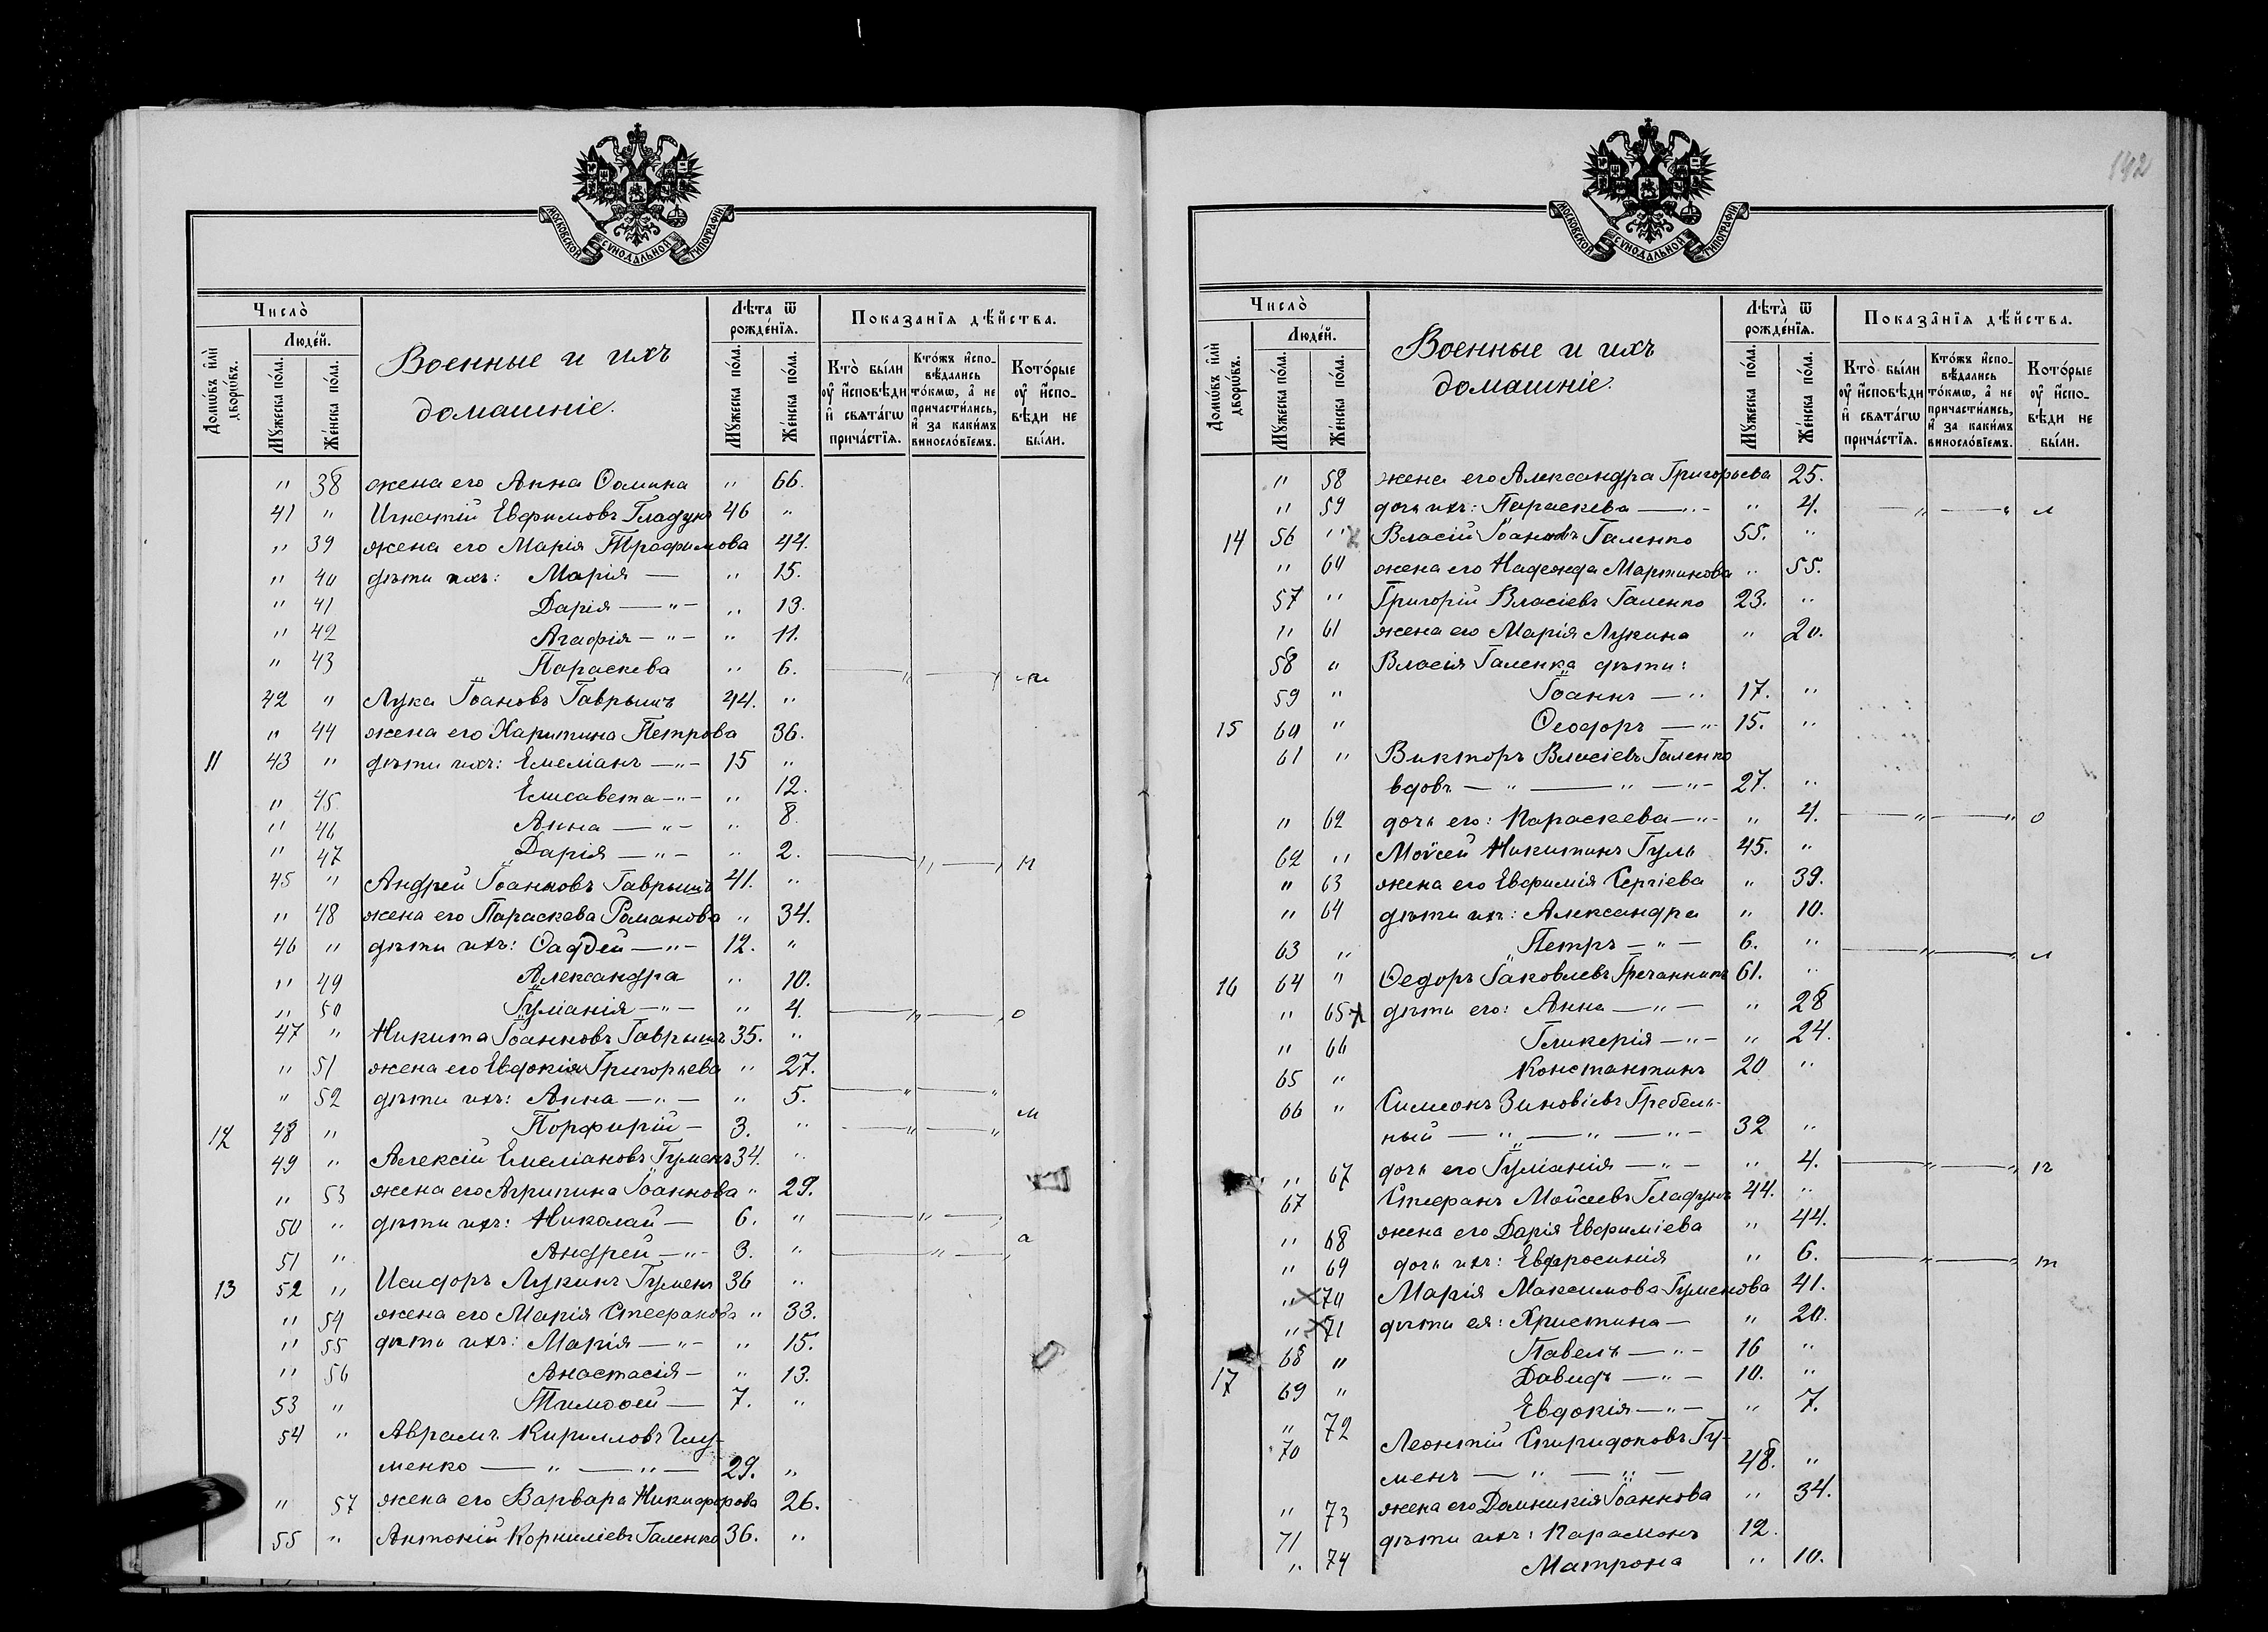 МОСКОВСКОЙ СѴНОДАЛЬНОЙ ТИПОГРАФІИ
Число̀
Домѡ́въ и҆лѝ дворѡ́въ.
Люде́й.
Мꙋ́жеска по́ла.
Же́нска по́ла.
Военные и ихъ
домашніе.
Лѣ́та ѿ рожде́нїѧ.
Мꙋ́жеска по́ла.
Же́нска по́ла.
Показанїѧ дѣ́йства.
Кто̀ бы́ли ᲂу҆ и҆́сповѣди и҆ свѧта́гѡ прича́стїѧ.
Кто́жъ и҆спо-вѣ́дались то́кмѡ, а҆ не причасти́лись, и҆ за каки́мъ виносло́вїемъ.
Кото́рые ᲂу҆ и҆́спо-вѣди не бы́ли.
" 38 жена его Анна Ѳомина " 66.
41 " Игнатій Евфимовъ Гладунъ 46 "
" 39 жена его Марія Трофимова 44.
" 40 дѣти ихъ: Марія — " 15.
" 41 Дарія — " — " 13.
" 42 Агафія — " — " 11.
" 43 Параскева " 6. — " — "
42 " Лука Іоановъ Гаврышъ 44. "
" 44 жена его Харитина Петрова 36.
11 43 " дѣти ихъ: Емеліанъ — " — 15 "
" 45 Елисавета — " — " 12.
" 46 Анна — " — " 8.
" 47 Дарія — " — " 2. — " — "
45 " Андрей Іоанновъ Гаврышъ 41. "
" 48 жена его Параскева Романова " 34.
46 " дѣти ихъ: Ѳаддей — " — 12. "
" 49 Александра " 10.
" 50 Іуліанія — " — " 4. — " — " о
47 " Никита Іоанновъ Гаврышъ 35. "
" 51 жена его Евдокія Григорьева " 27.
" 52 дѣти ихъ: Анна — " — " 5. — " — "
12 48 " Порфирій — 3. " — " — " м
49 " Алексій Емеліановъ Гуменъ 34. "
" 53 жена его Агрипина Іоаннова " 29.
50 " дѣти ихъ: Николай — 6. " — " —
51 " Андрей — " — 3. " — " — " а
13 52 " Исидоръ Лукинъ Гуменъ 36 "
" 54 жена его Марія Стефанова " 33.
" 55 дѣти ихъ: Марія — " — " 15.
" 56 Анастасія — " 13.
53 " Тимоѳей — 7. "
54 " Аврамъ Кирилловъ
менко — " — " — 29. "
" 57 жена его Варвара Никифорова 26.
55 " Антоній Корниліевъ Галенко 36. "
142
МОСКОВСКОЙ СѴНОДАЛЬНОЙ ТИПОГРАФІИ
Число̀
Домѡ́въ и҆лѝ дворѡ́въ.
Люде́й.
Мꙋ́жеска по́ла.
Же́нска по́ла.
Военные и ихъ
домашніе.
Лѣта̀ ѿ рожде́нїѧ.
Мꙋ́жеска по́ла.
Же́нска по́ла.
Показа̑нїѧ дѣ́йства.
Кто̀ бы́ли ᲂу҆ и҆́сповѣди и҆ свѧта́гѡ прича́стїѧ.
Кто́жъ и҆спо-вѣ́дались то́кмѡ, а҆ не причасти́лись, и҆ за каки́мъ виносло́вїемъ.
Кото́рые ᲂу҆ и҆́спо-вѣди не бы́ли.
" 58 жена его Александра Григорьева 25.
" 59 дочь ихъ: Параскева — " — " 4. — " — "
14 56 " Власій Іоанновъ Галенко 55. "
" 60 жена его Надежда Мартинова " 55.
57 " Григорій Власіевъ Галенко 23. "
" 61 жена его Марія Лукина " 20.
58 " Власія Галенка дѣти:
59 " Іоаннъ — " 17. "
15 60 " Ѳеодоръ — " — 15. "
61 " Викторъ Власіевъ Галенко
вдовъ — " — " — " — 27. "
" 62 дочь его: Параскева — " — " 4. — " — " о
62 " Моѵсей Никитинъ Гуль 45. "
" 63 жена его Евфимія Сергіева " 39.
" 64 дѣти ихъ: Александра " 10.
63 " Петръ — " — 6. " — " — "
16 64 " Ѳедоръ Іаковлевъ Гречанникъ 61. "
" 65 дѣти его: Анна — " — " 28
" 66 Гликерія — " — " 24.
65 " Константинъ 20 "
66 " Симеонъ Зиновіевъ Гребель-
ный — " — " — " — 32 "
" 67 дочь его Іуліанія — " — " 4. — " — "
67 " Стефанъ Мойсеевъ Гладунъ 44. "
" 68 жена его Дарія Евфиміева " 44.
" 69 дочь ихъ: Евфросинія " 6. — " — " т
" 70 Марія Максимова Гуменова 41.
" 71 дѣти ея: Христина — " 20.
68 " Павелъ — " — 16 "
17 69 " Давидъ — " — 10. "
" 72 Евдокія — " — " 7.
70 Леонтій Спиридоновъ Гу-
менъ — " — " — 48. "
" 73 жена его Домникія Іоаннова " 34.
71 дѣти ихъ: Парамонъ 12.
" 74 Матрона " 10.